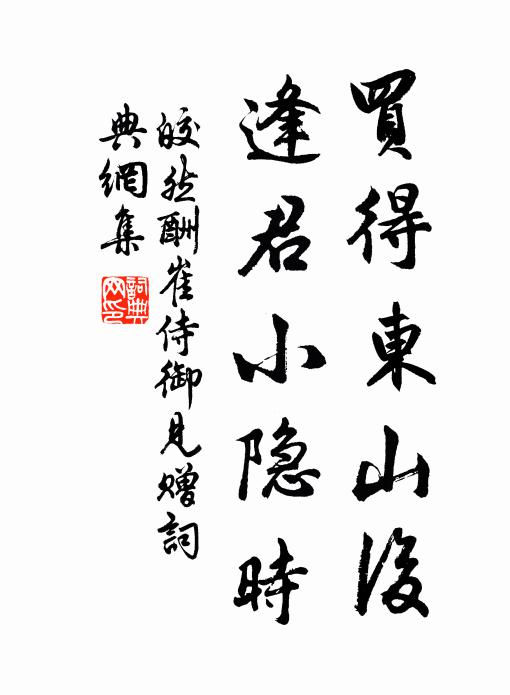 買得東山後
逢君小隐時
皎然酬崔侍御見贈詞
典網集
詞典
网印